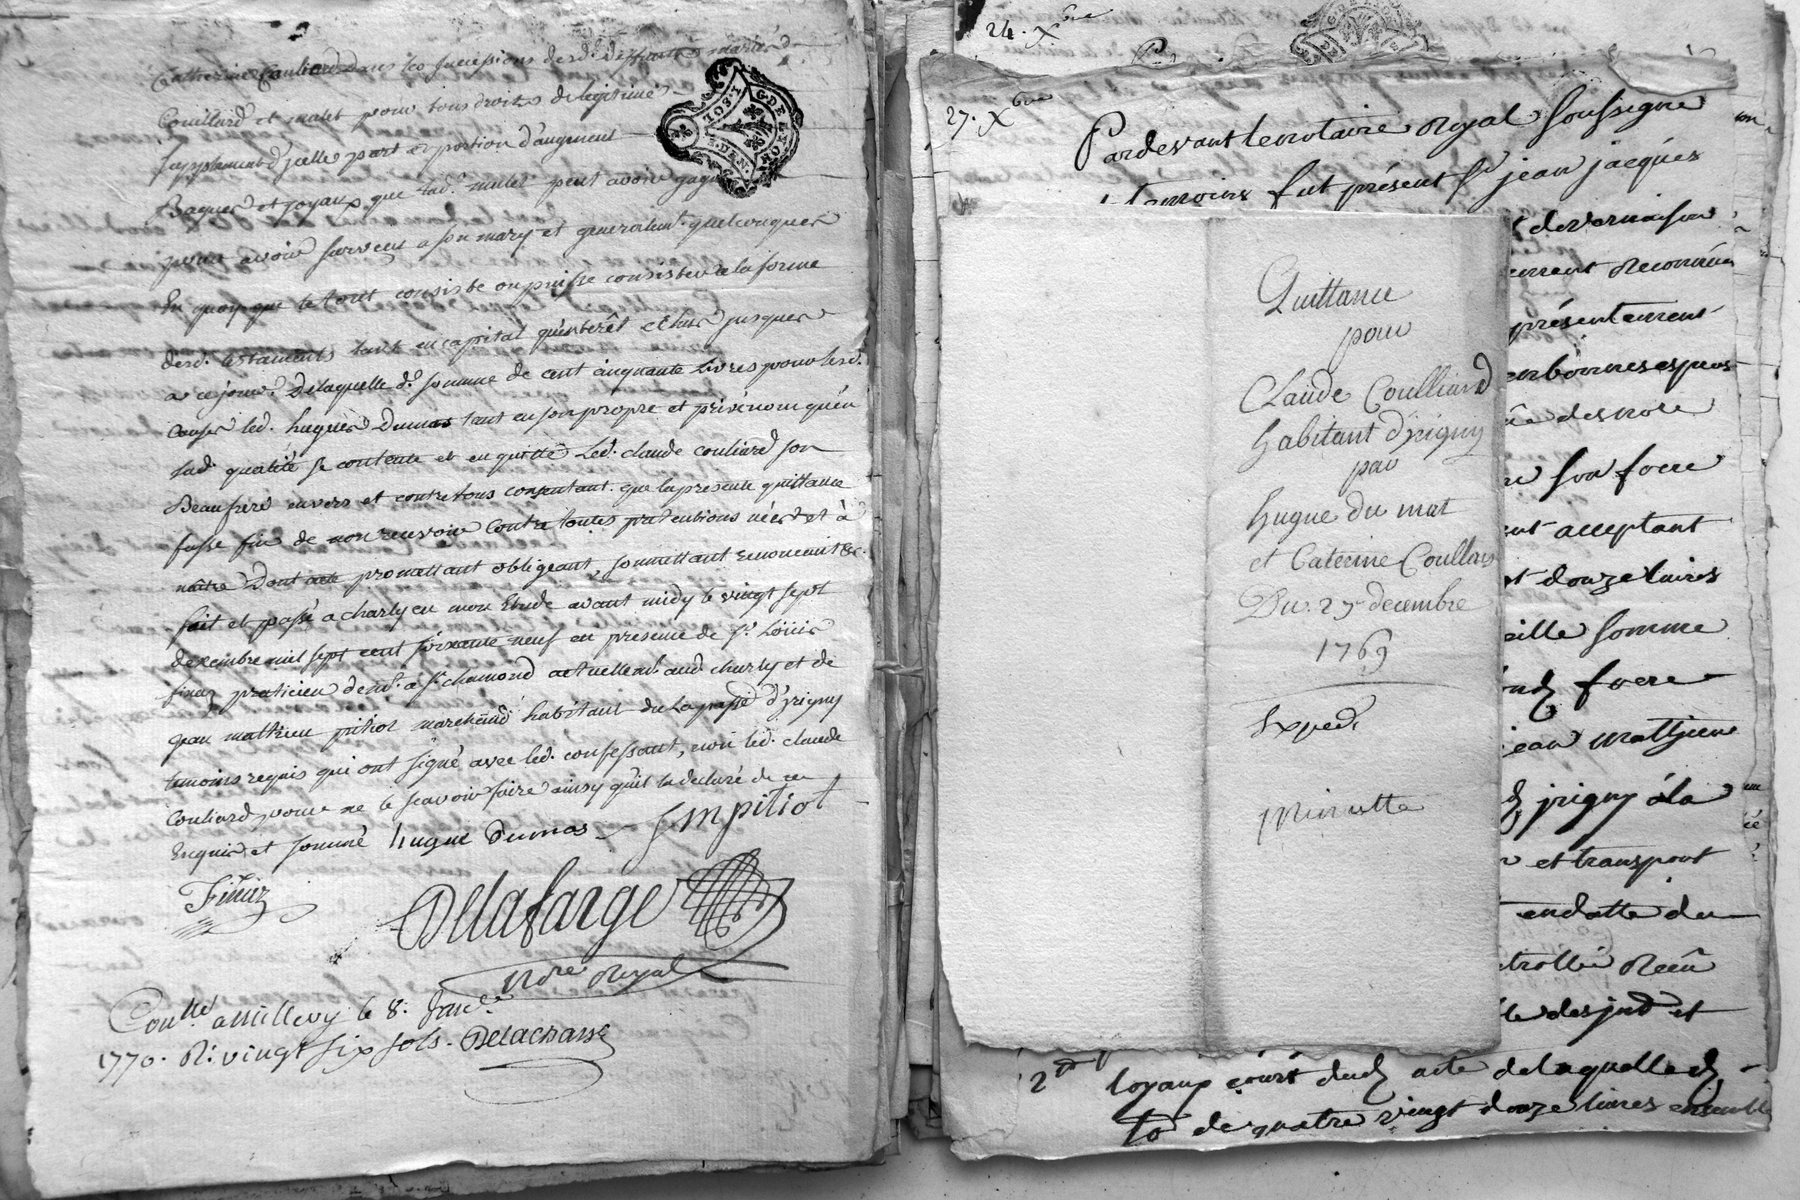 Catherine Couliard dans les successions desd. deffunts mariés
Couillard et malet pour tous droits de legitime
supplement d'jcelle part et portion d'augment
Bagues et joyaux que lad. malet peut avoir gagné
pour avoir survecu a son mary et generalemt. quelconques
En quoy que le tout consiste ou puisse consister a la forme
desd. testaments tant en capital qu'interêt et lus jusques
a ce jour. De laquelle d. somme de cent cinquante Livres pour lesd.
causes led. hugues Dumas tant en son propre et privé nom qu'en
lad. qualité se contente et en quitte Led. claude couliard son
Beaufrere envers et contre tous consentant que la presente quittance
fasse fin de non recevoir contre toutes pretentions nées et à
naître Dont acte promettant obligeant, soumettant renoncant &c.
fait et passé a charly en mon Etude avant midy le vingt sept
decembre mil sept cent soixante neuf en presence de sr. Louis
finaz praticien demt. à st. chamond actuellemt. aud. charly et de
jean mathieu pitiot marchand habitant du Lapasse d'jrigny
temoins requis qui ont signé avec led. confessant, non led. claude
Couliard pour ne le scavoir faire ainsy qu'il la declaré de ce
Enquis et sommé hugue Dumas JMpitiot
Finaz
Delafarge
Nore Royal
Conllé. a millery le 8. Janer.
1770. R. vingt six sols. Delachasse
24. Xbre
27. Xbre
Pardevant le notaire Royal soussigné
temoins fut présent sr. jean jacques
de vernaison
ement reconnu
présentement
en bonnes especes
des note
son frere
ent acceptant
t douze livres
eille somme
frere
jean mathieu
jrigny à la
et transport
en datte du
trollé Receu
le des jud et
Quittance
pour
Claude Coulliard
habitant d'jrigny
par
hugue du mat
et Caterine Coullard
Du 27 decembre
1769
Exped.
Minutte
2
loyaux cours dud. acte de laquelle d.
to de quatre vingt douze livres ensemble